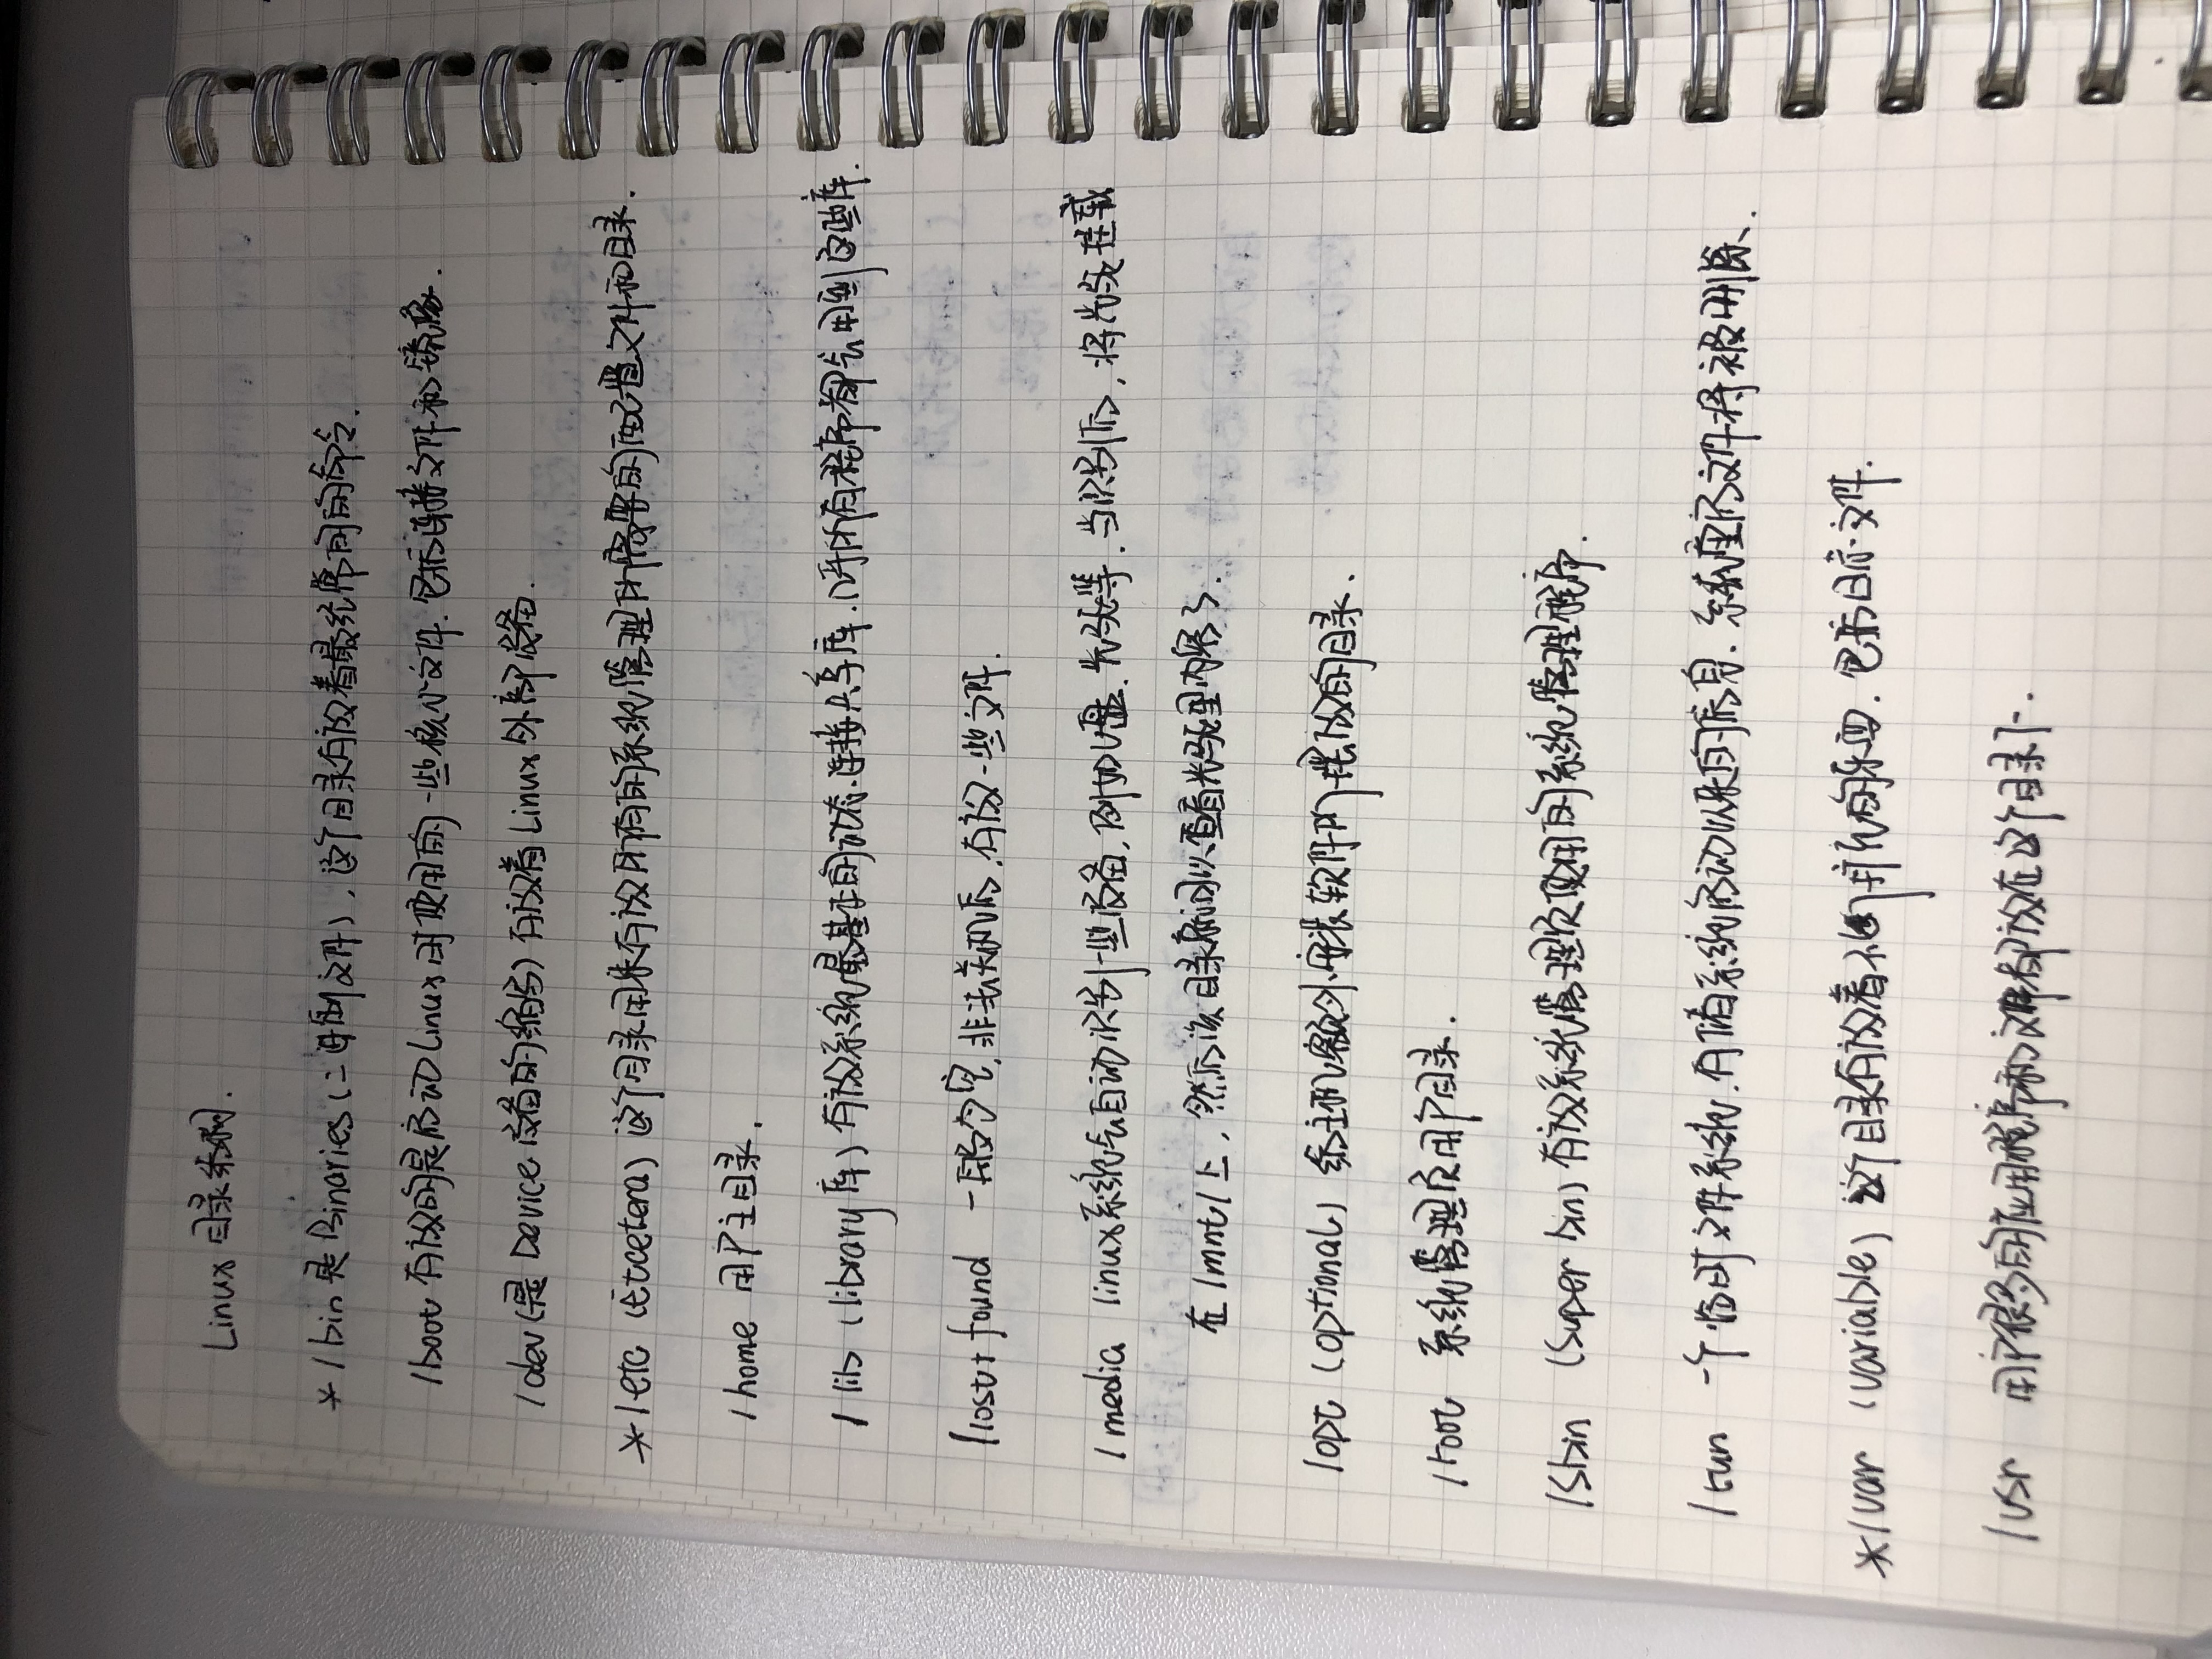 Linux 目录结构.
* /bin 是 Binaries (二进制文件), 这个目录存放着最经常用的命令.
/boot 存放的是启动 Linux 时使用的一些核心文件. 包括连接文件和镜像.
/dev (是 Device 设备的缩写) 存放着 Linux 外部设备.
* /etc (Etcetera) 这个目录用来存放所有的系统管理所需要的配置文件和目录.
/home 用户主目录.
/lib (library 库) 存放系统最基本的动态连接共享库. 几乎所有程序都会用到这些库.
/lost+found 一般为空, 非法关机后, 存放一些文件.
/media linux系统会自动识别一些设备, 例如U盘. 光驱等. 当识别后, 将光驱挂载
在 /mnt/ 上, 然后该目录就可以查看光驱里内容了.
/opt (optional) 给主机额外安装软件所摆放的目录.
/root 系统管理员用户目录.
/sbin (Super bin) 存放系统管理员使用的系统管理程序.
/run 一个临时文件系统. 存储系统启动以来的信息. 系统重启文件将被删除.
* /var (variable) 这个目录存放着不断扩充的东西. 包括日志文件.
/usr 用户很多的应用程序和文件都放在这个目录下.